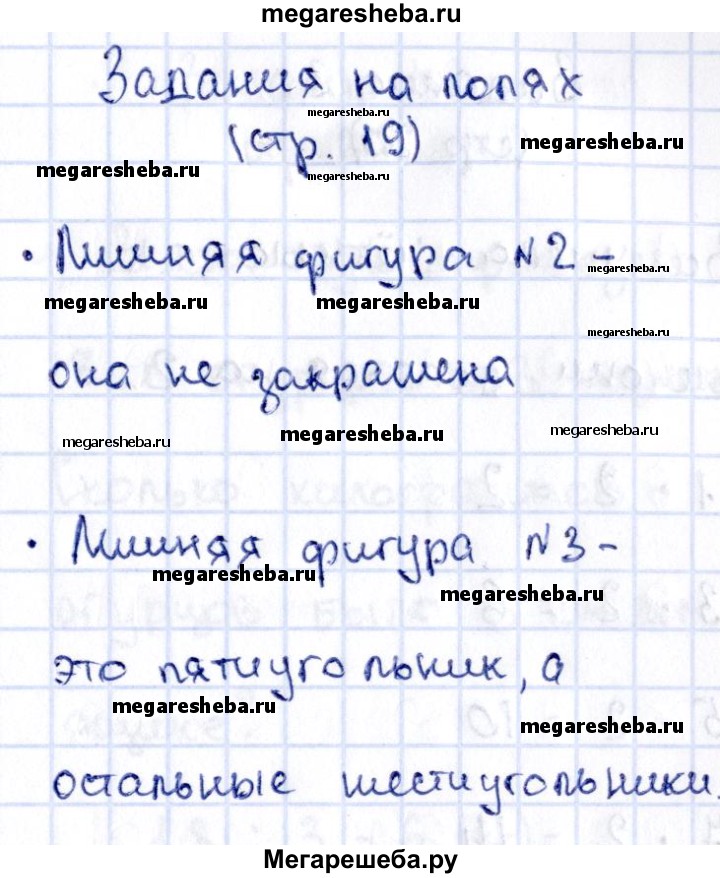 megaresheba.ru
Задания на полях
megaresheba.ru
(стр. 19)
megaresheba.ru
megaresheba.ru
megaresheba.ru
• Лишняя фигура №2 –
megaresheba.ru
megaresheba.ru
megaresheba.ru
megaresheba.ru
она не закрашена
megaresheba.ru
megaresheba.ru
megaresheba.ru
• Лишняя фигура №3 –
megaresheba.ru
megaresheba.ru
это пятиугольник, а
megaresheba.ru
megaresheba.ru
остальные шестиугольники.
Мегарешеба.ру